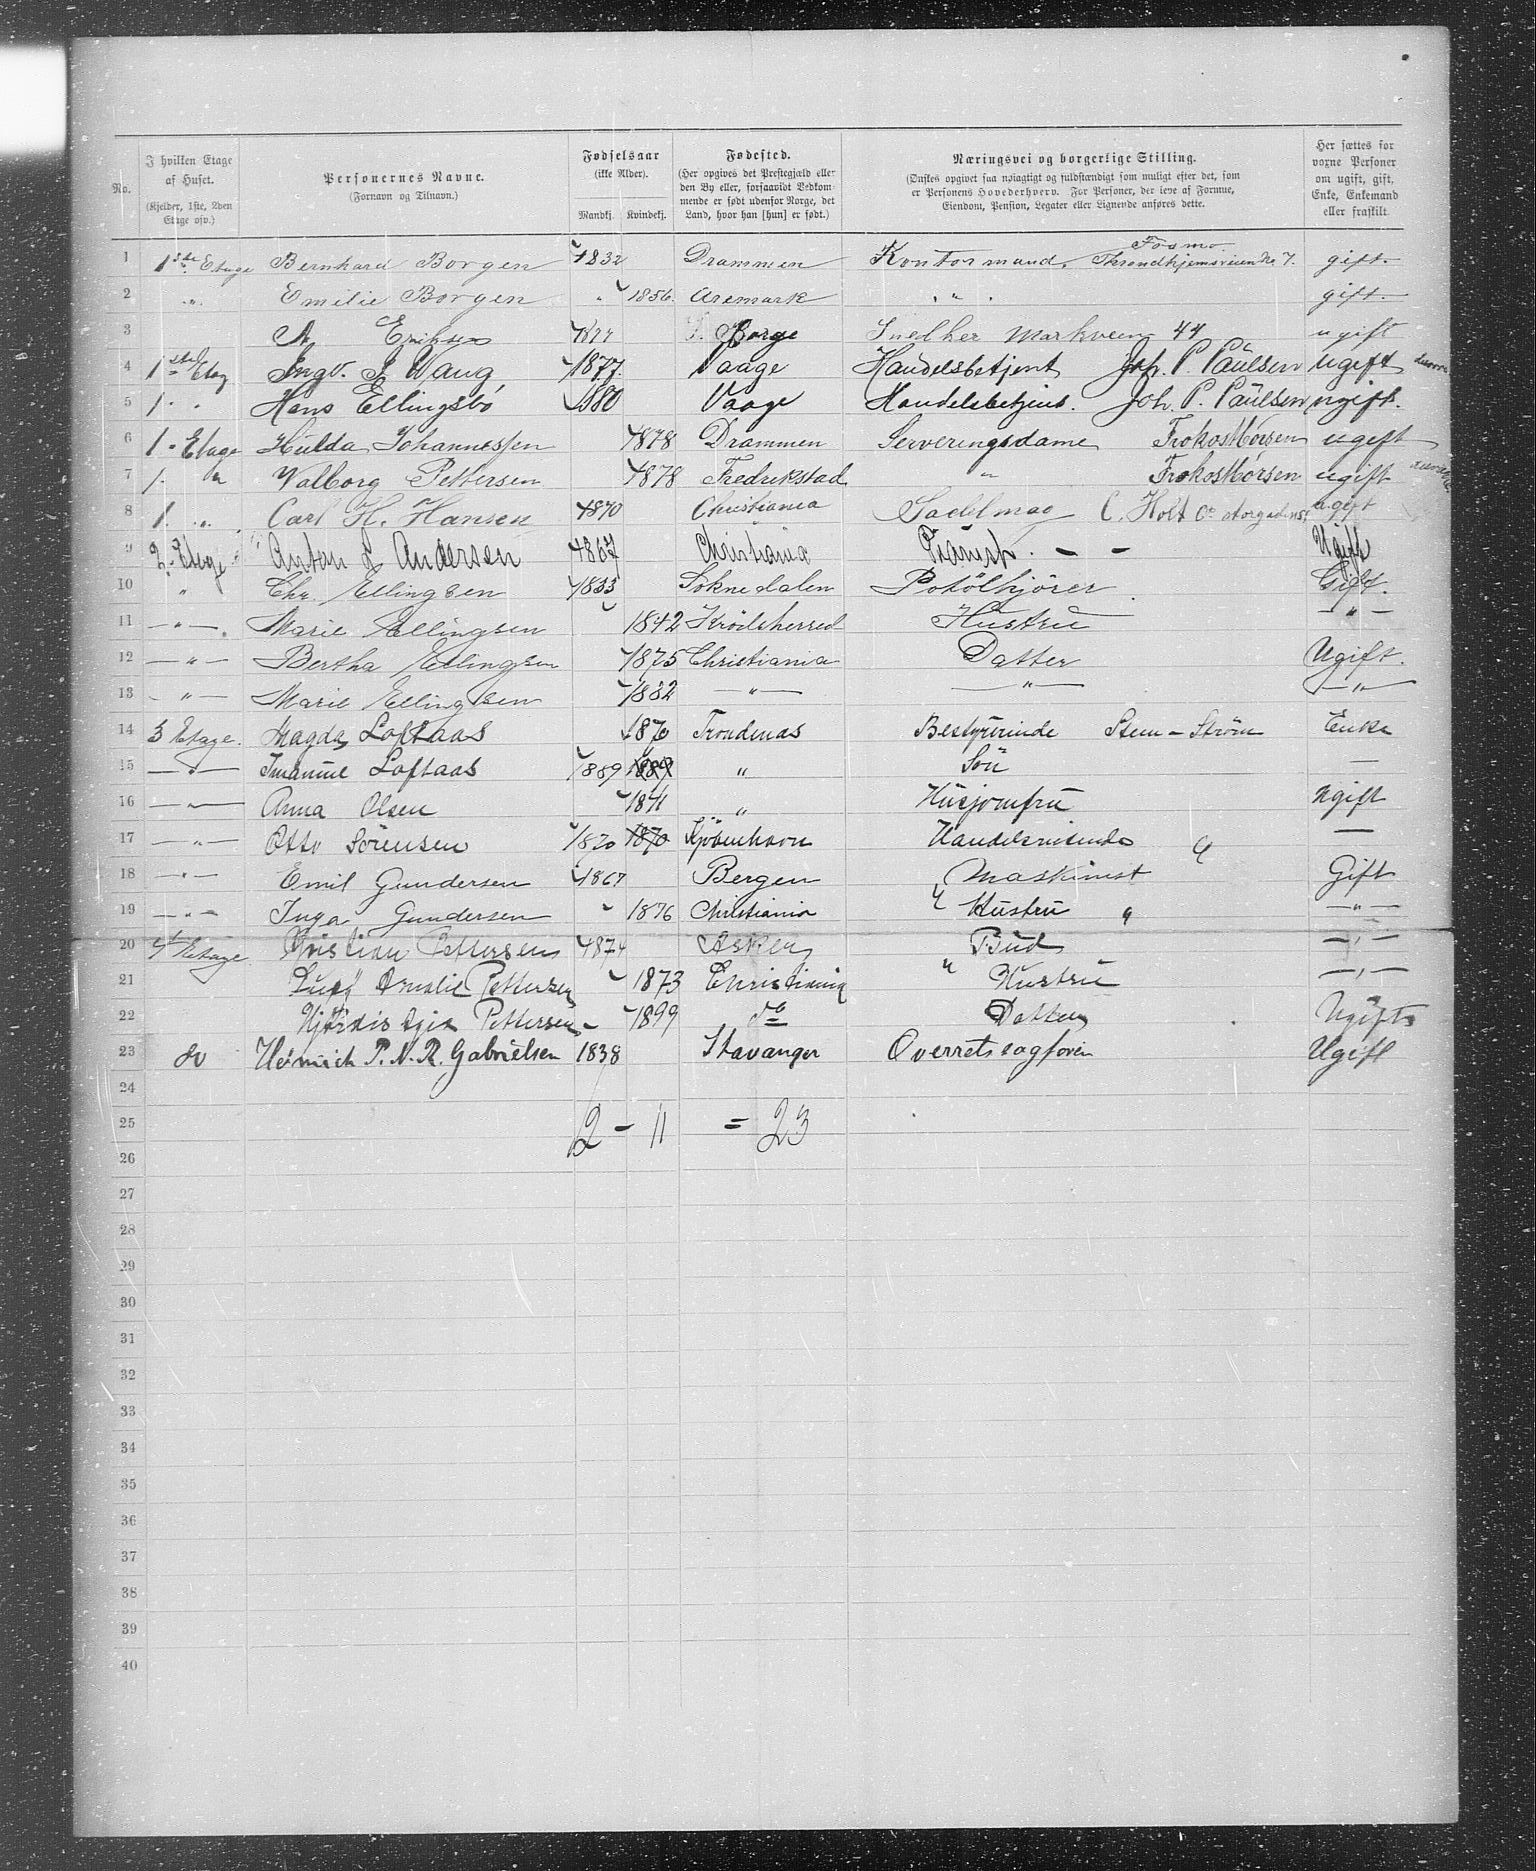 No. I hvilken Etage af Huset. (Kjelder, 1ste, 2den Etage osv.) Personernes Navne. (Fornavn og Tilnavn.) Fødselsaar (ikke Alder). Mandkj. Kvindekj. Fødested. (Her opgives det Prestegjæld eller den By eller, forsaavidt Vedkommende er født udenfor Norge, det Land, hvor han [hun] er født.) Næringsvei og borgerlige Stilling. (Ønskes opgivet saa nøiagtigt og fuldstændigt som muligt efter det, som er Personens Hovederhverv. For Personer, der leve af Formue, Eiendom, Pension, Legater eller Lignende anføres dette. Her sættes for voxne Personer om ugift, gift, Enke, Enkemand eller fraskilt.
1 1ste Etage Bernhard Borgen 1832 Drammen Kontormand. Fosmo Throndhjemsveien No 7. gift
2 " Emilie Borgen " 1856. Aremark " gift
3 A Eriksen 1877 Borge Snedker Markveien 44 ugift
4 1ste Etag Ingv. J. Wang, 1877. Vaage Handelsbetjent Joh. P. Paulsen ugift
5 1. " Hans Ellingsbø 1880 Vaage Handelsbetjent. Joh. P. Paulsen ugift.
6 1 - Etage Hulda Johannessen 1878 Drammen Serveringsdame Frokostbørsen ugift
7 1. " Valborg Pettersen 1878 Fredrikstad " Frokostbørsen ugift
8 1. " Carl H. Hansen 1870 Christiania Sadelmag C. Holt Co Storgadens ugift
9 2. Etage Anton L Andersen 1867 Christiania - - Ugift
10 " Chr. Ellingsen 1833 Soknedalen Potølkjører Gift.
11 " Marie Ellingsen 1842 Krödsherred Hustru "
12 " Bertha Ellingsen 1875 Christiania Datter Ugift.
13 " Marie Ellingsen 1882 " " "
14 3 Etage. Magda Loftaas 1870 Trondenas Bestyrerinde Sten - Strøm Enke
15 " Imanuel Loftaas 1889 1889 " Sön —
16 " Anna Olsen 1841 " Husjomfru Ugift
17 " Otto Sörensen 1870 1870 Kjöbenhavn Handelsreisende —
18 " Emil Gundersen 1867 Bergen Maskinist Gift
19 " Inga Gundersen 1876 Christiania " Hustru " "
20 4 Etage Kristian Pettersen 1874 Asker Bud "
21 Amalie Pettersen 1873 Christiania " Hustru "
22 Hjørdis Pettersen - 1899 do Datter Ugift
23 do Heinrich P. N. R. Gabrielsen 1838 Stavanger Overretssagfører Ugift
24
25 12 - 11 = 23
26
27
28
29
30
31
32
33
34
35
36
37
38
39
40